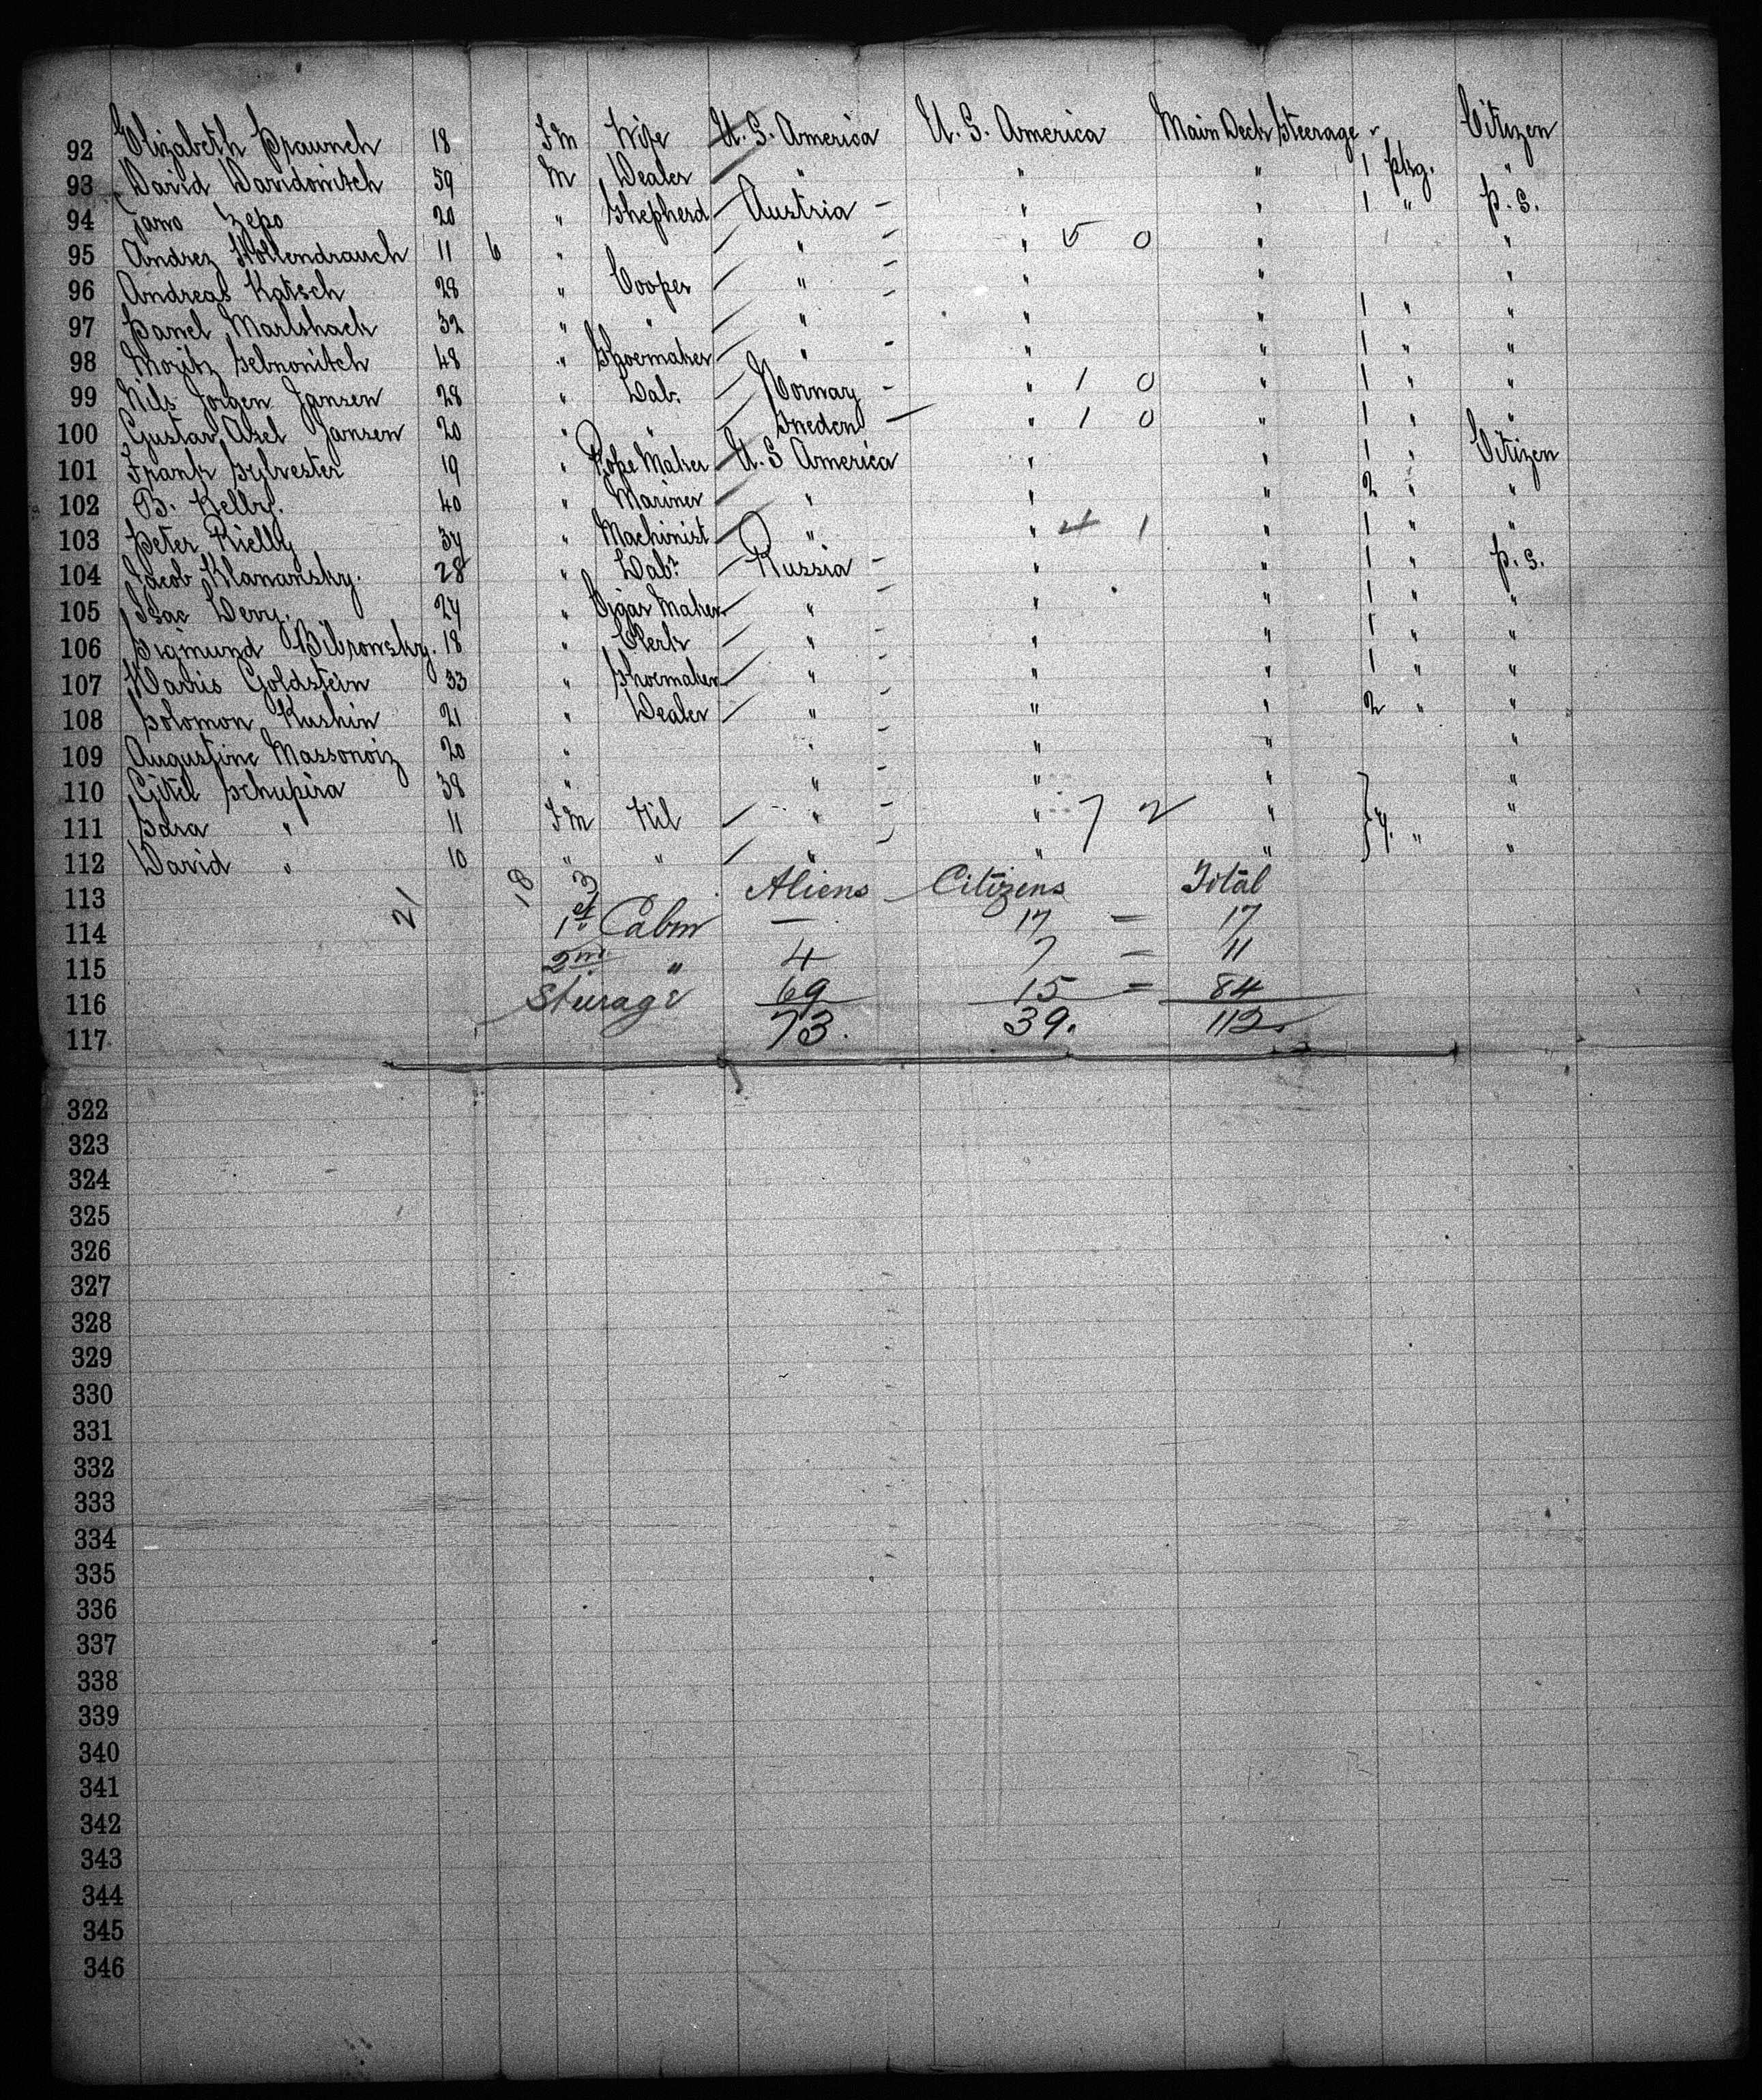 92 Elizabeth Praunch 18 Fm Wife U. S. America U. S. America Main Deck Steerage Citizen
93 David Davidowitsch 59 M Dealer " " " 1 pkg. "
94 Jano Zepo 20 " Shepherd Austria " " 1 " P. S.
95 Andrez Hollendrauch 11 6 " " " 5 0 " "
96 Andreas Katsch 28 " Cooper " " " "
97 Pawel Marlshack 32 " " " " " 1 " "
98 Moritz Lebnowitch 48 " Shoemaker " " " 1 " "
99 Nils Jorgen Jansen 28 " Lab. Norway " 1 0 " 1 " "
100 Gustav Axel Jansen 20 " " Sweden " 1 0 " 1 " "
101 Frank Sylvester 19 " Rope Maker U. S America " " 1 " Citizen
102 B. Kelly. 40 " Mariner " " " 2 " "
103 Peter Rielly 34 " Machinist " " 4 1 " 1 " "
104 Jacob Klanansky. 28 " Labr. Russia " " 1 " P. S.
105 Isac Levy. 24 " Cigar Maker " " " 1 " "
106 Sigmund Bibrowsky. 18 " Clerk " " " 1 " "
107 Harris Goldstein 33 " Shoemaker " " " 1 " "
108 Solomon Kushin 21 " Dealer " " " 2 " "
109 Augustine Massonoiz 20 " " " " "
110 Gitel Schupira 38 " " " " "
111 Sara " 11 Fm Nil " " 7 2 " } 4. " "
112 David " 10 " " " " " "
113 21 18 3 Aliens Citizens Total
114 1st Cabin — 17 = 17
115 2nd " 4 7 = 11
116 Steerage 69 15 = 84
117 73. 39. 112.
322
323
324
325
326
327
328
329
330
331
332
333
334
335
336
337
338
339
340
341
342
343
344
345
346